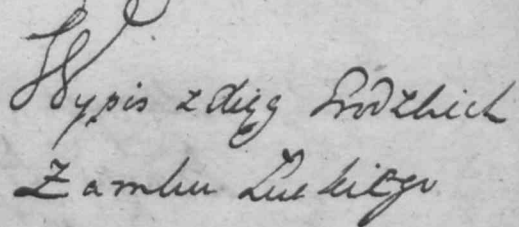 Wypis z Xięg Grodzkich
Zamku Łuckiego